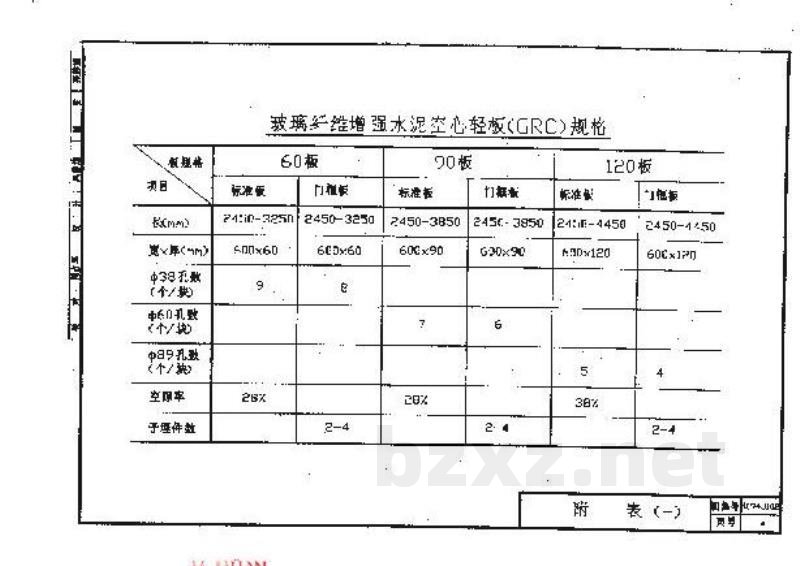 玻璃纤维增强水泥空心轻板(GRC)规格
板规格 60板 90板 120板
项目 标准板 门框板 标准板 门框板 标准板 门框板
长(mm) 2450-3250 2450-3250 2450-3850 2450-3850 2450-4450 2450-4450
宽×厚(mm) 600×60 600×60 600×90 600×90 600×120 600×120
φ38孔数 9 8
(个/块)
φ60孔数 7 6
(个/块)
φ89孔数 5 4
(个/块)
空隙率 28% 28% 38%
予埋件数 2-4 2-4 2-4
bzxz.net
附 表(一) 图集号
页号